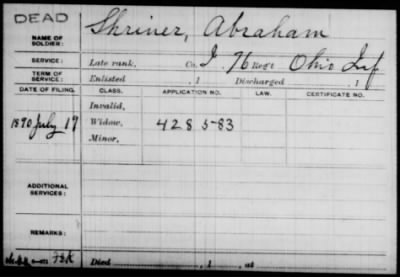 DEAD
Shriner, Abraham
NAME OF SOLDIER:
SERVICE: Late rank, Co. I, 76 Reg't Ohio Inf
TERM OF SERVICE: Enlisted , 1 Discharged , 1
DATE OF FILING. CLASS. APPLICATION NO. LAW. CERTIFICATE NO.
Invalid,
1890 July 19 Widow, 428583
Minor,
ADDITIONAL SERVICES:
REMARKS:
Died , 1 , at